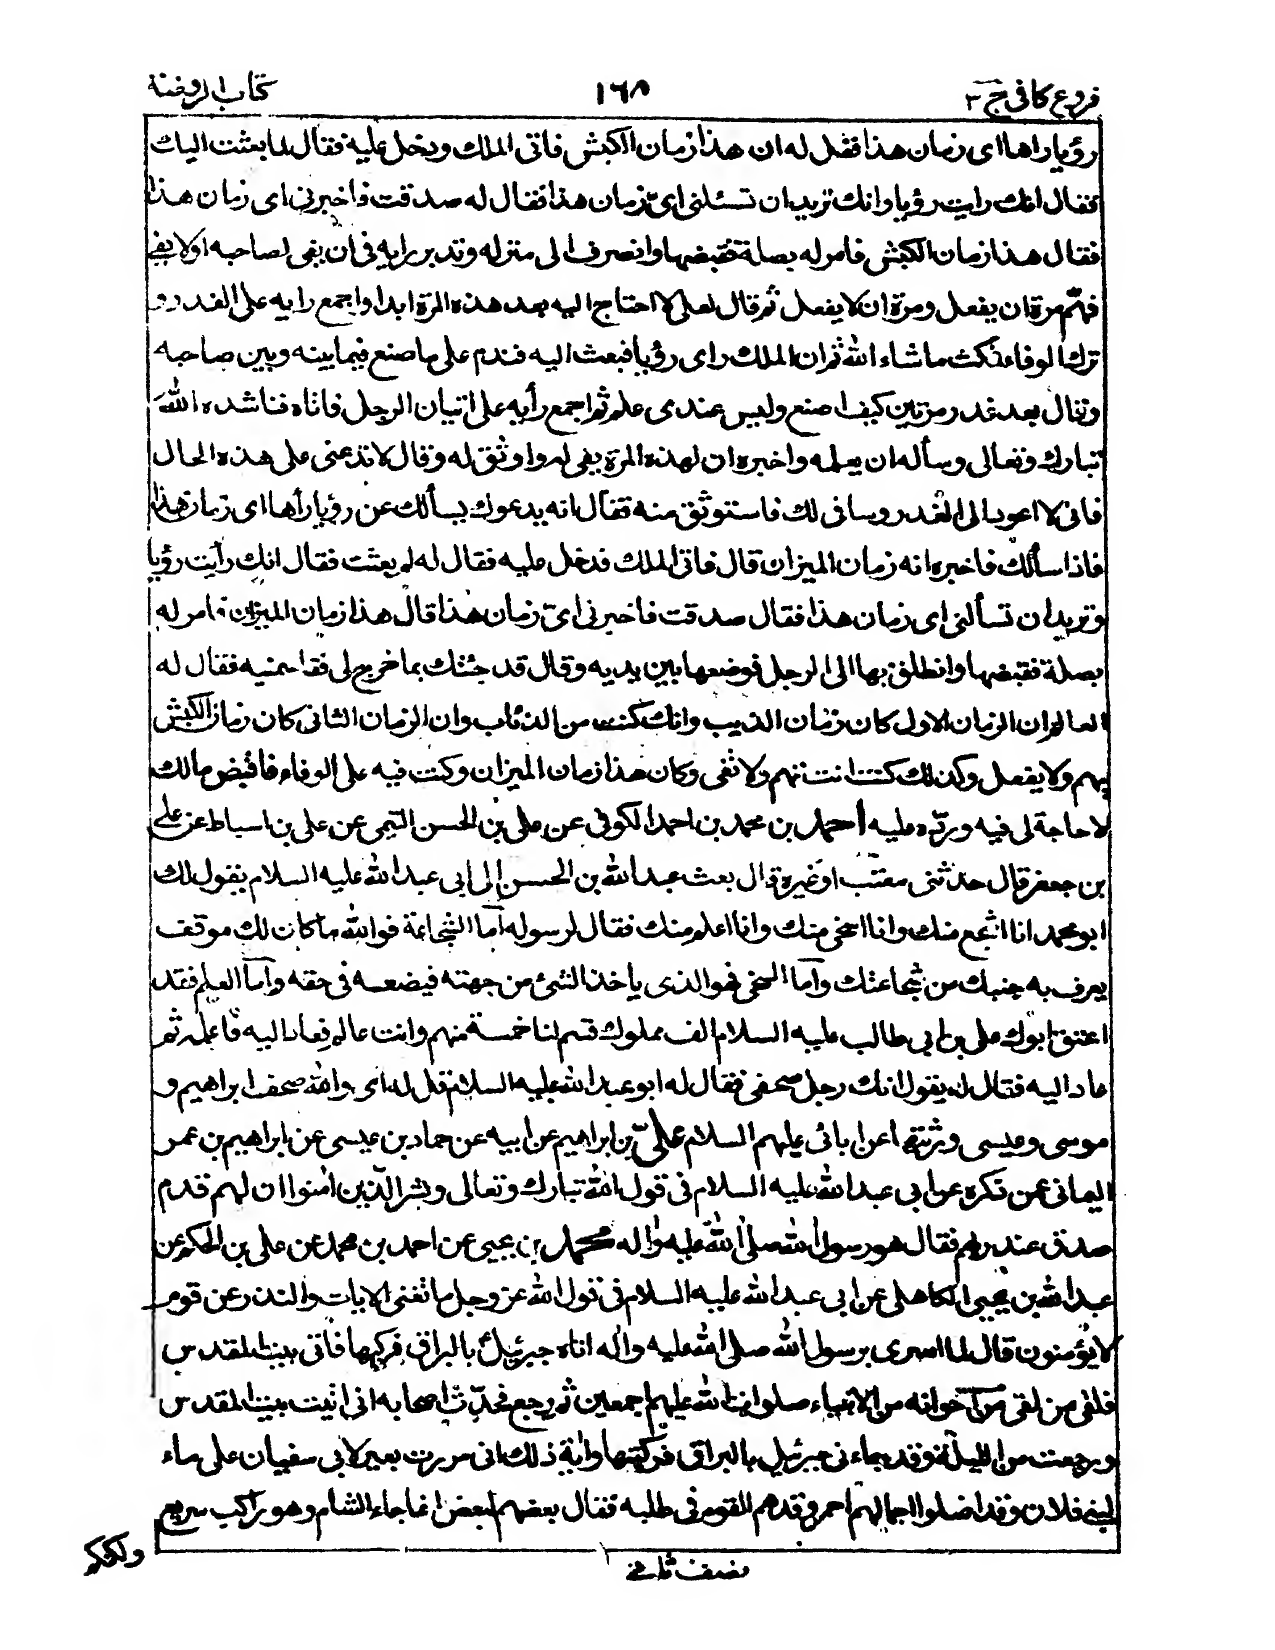 فروع كافى ج ٣
١٦٨
كتاب الروضة
رؤيا راها اى زمان هذا فقل له ان هذا زمان الكبش فاتى الملك ودخل عليه فقال لما بعثت اليك
فقال انك رايت رؤيا وانك تريد ان تسئلنى اى زمان هذا فقال له صدقت فاخبرنى اى زمان هذا
فقال هذا زمان الكبش فامر له بصلة فقبضها وانصرف الى منزله وتدبر رايه فى ان يفى لصاحبه او لا يفى
فهم مرة ان يفعل ومرة ان لا يفعل ثم قال لعلى لا احتاج اليه بعد هذه المرة ابدا واجمع رايه على الغدر و
ترك الوفاء فمكث ما شاء الله ثم ان الملك راى رؤيا فبعث اليه فندم على ما صنع فيما بينه وبين صاحبه
وقال بعد غدر مرتين كيف اصنع وليس عندى علم ثم اجمع رأيه على اتيان الرجل فاتاه فناشده الله
تبارك وتعالى وسأله ان يعلمه واخبره ان هذه المرة يفى له واوثق له وقال لا تدعنى على هذه الحال
فانى لا اعود الى الغدر وسافى لك فاستوثق منه فقال انه يدعوك يسألك عن رؤيا رأها اى زمان هذا
فاذا سألك فاخبره انه زمان الميزان قال فاتى الملك فدخل عليه فقال له لم بعثت فقال انك رأيت رؤيا
وتريد ان تسألنى اى زمان هذا فقال صدقت فاخبرنى اى زمان هذا قال هذا زمان الميزان فامر له
بصلة فقبضها وانطلق بها الى الرجل فوضعها بين يديه وقال قد جئتك بما خرج لى فقاسمنيه فقال له
العالم ان الزمان الاول كان زمان الذيب وانك كنت من الذئاب وان الزمان الثانى كان زمان الكبش
يهم ولا يفعل وكذلك كنت انت تهم ولا تفى وكان هذا زمان الميزان وكنت فيه على الوفاء فاقبض مالك
لا حاجة لى فيه ورده عليه احمد بن محمد بن احمد الكوفى عن على بن الحسن التيمى عن على بن اسباط عن على
بن جعفر قال حدثنى معتب او غيره قال بعث عبد الله بن الحسن الى ابى عبد الله عليه السلام يقول لك
ابو محمد انا اشجع منك وانا اسخى منك وانا اعلم منك فقال لرسوله اما الشجاعة فوالله ما كان لك موقف
يعرف به جبنك من شجاعتك واما السخى فهو الذى ياخذ الشئ من جهته فيضعه فى حقه واما العلم فقد
اعتق ابوك على بن ابى طالب عليه السلام الف مملوك فسم لنا خمسة منهم وانت عالم فعاد اليه فاعلمه ثم
عاد اليه فقال له يقول انك رجل صحفى فقال له ابو عبد الله عليه السلام قل له اى والله صحف ابراهيم و
موسى وعيسى ورثتها عن ابائى عليهم السلام على بن ابراهيم عن ابيه عن حماد بن عيسى عن ابراهيم بن عمر
اليمانى عمن ذكره عن ابى عبد الله عليه السلام فى قول الله تبارك وتعالى وبشر الذين امنوا ان لهم قدم
صدق عند ربهم فقال هو رسول الله صلى الله عليه واله محمد بن يحيى عن احمد بن محمد عن على بن الحكم عن
عبد الله بن يحيى الكاهلى عن ابى عبد الله عليه السلام فى قول الله عز وجل ما تغنى الايات والنذر عن قوم
لا يؤمنون قال لما اسرى برسول الله صلى الله عليه واله اتاه جبرئيل بالبراق فركبها فاتى بيت المقدس
فلقى من لقى من اخوانه من الانبياء صلوات الله عليهم اجمعين ثم رجع فحدث اصحابه انى اتيت بيت المقدس
ورجعت من الليلة وقد جاءنى جبرئيل بالبراق فركبتها واية ذلك انى مررت بعير لابى سفيان على ماء
لبنى فلان وقد اضلوا جملا لهم احمر وقد هم القوم فى طلبه فقال بعضهم لبعض انما جاء الشام وهو راكب سريع
ولكنكم
نصف ثانى